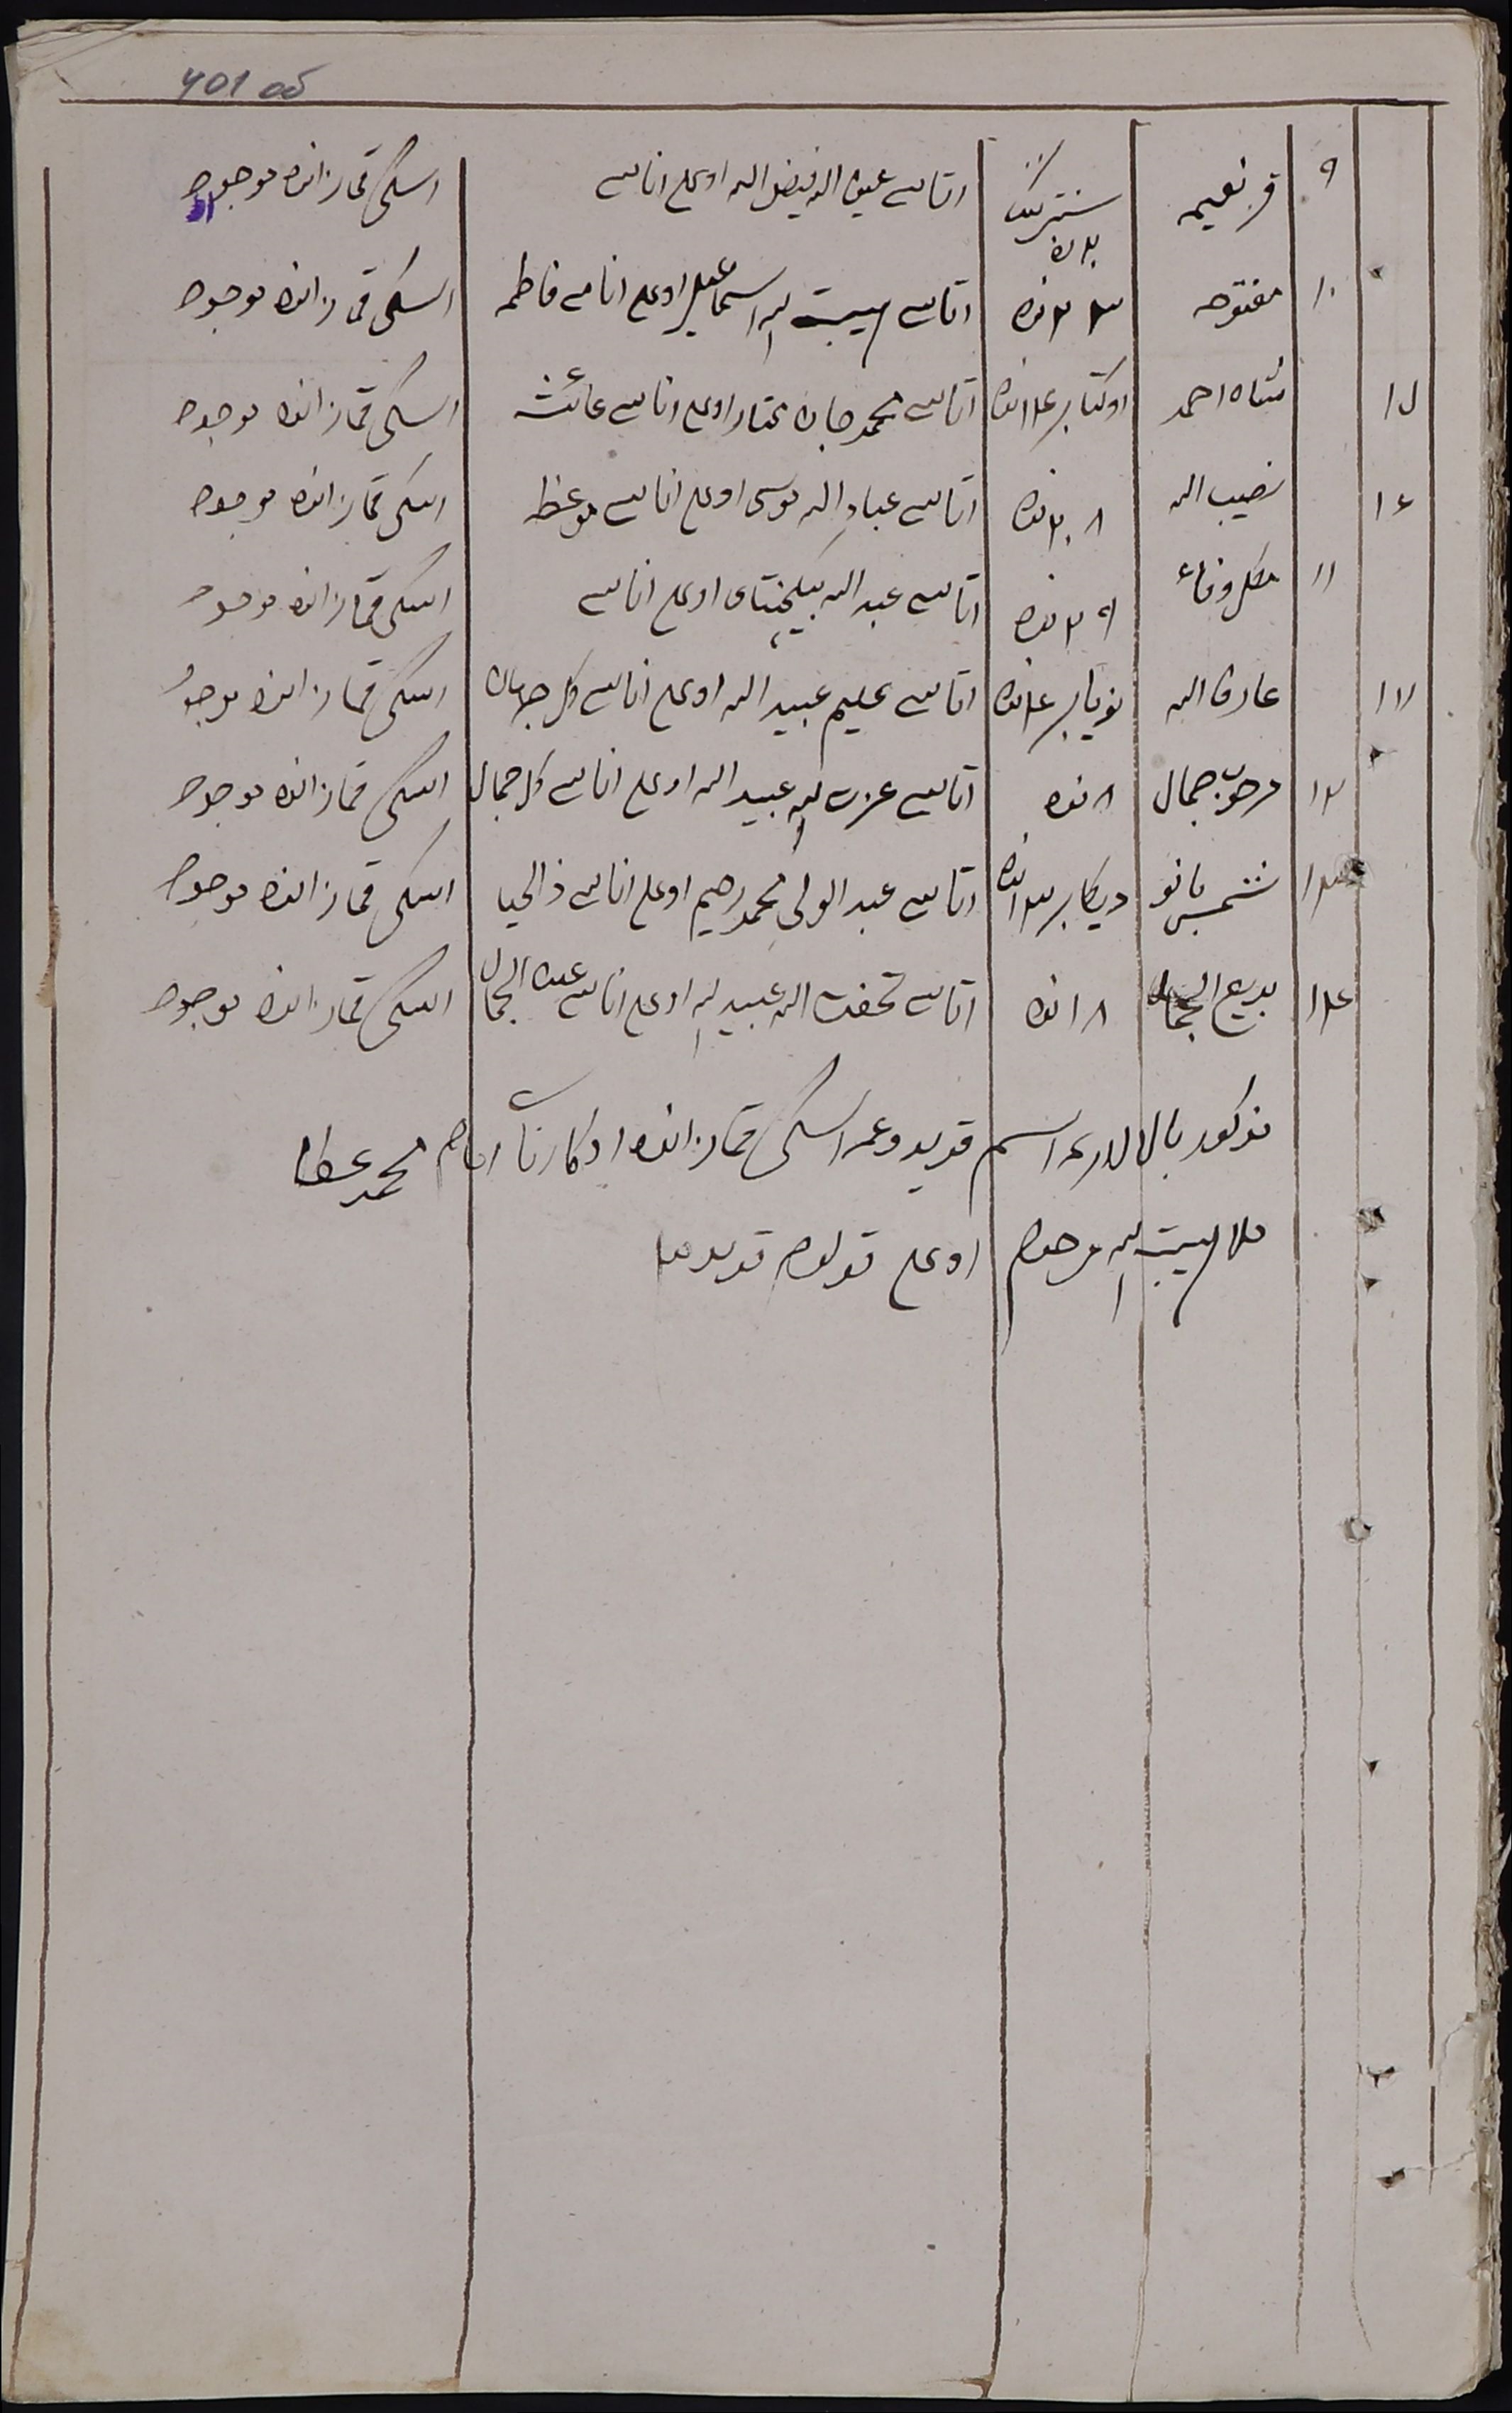 401 об
٩ قرنعیمه سنتبر بردن اتاسی عین الله فیض الله اوغلی اناسی اسکی قمازانده موجود
١٠ مفتوحه ٢٣ نده اتاسی هیبت الله اسماعیل اوغلی اناسی فاطمه اسکی قمازانده موجود
١٥ شاه احمد اوکتابر ٤ انده اتاسی محمدجان مختار اوغلی اناسی عائشه اسکی قمازانده موجود
١٦ نصیب الله ٢٠٨ نده اتاسی عباد الله موسی اوغلی اناسی موعظه اسکی قمازانده موجود
١١ ٢٩ نده اتاسی عبد الله اوغلی اناسی اسکی قمازانده موجود
١٧ عارف الله نویابر ٤ انده اتاسی علیم عبید الله اوغلی اناسی کل جهان اسکی قمازانده موجود
١٢ مرحوب جمال ٨ نده اتاسی عزت الله عبید الله اوغلی اناسی کل جمال اسکی قمازانده موجود
١٣ شمس بانو دیکابر ٣ انده اتاسی عبد الولی محمد رحیم اوغلی اناسی ذالحیا اسکی قمازانده موجود
١٤ بدیع الجمال ١٨ نده اتاسی تحفت الله عبید الله اوغلی اناسی عین الجمال اسکی قمازانده موجود
مذکور بالالارغه اسم قویدوغمه اسکی قمازانده امام محمد عطا
ملا هیبت الله مرحوم اوغلی قولوم قویدم